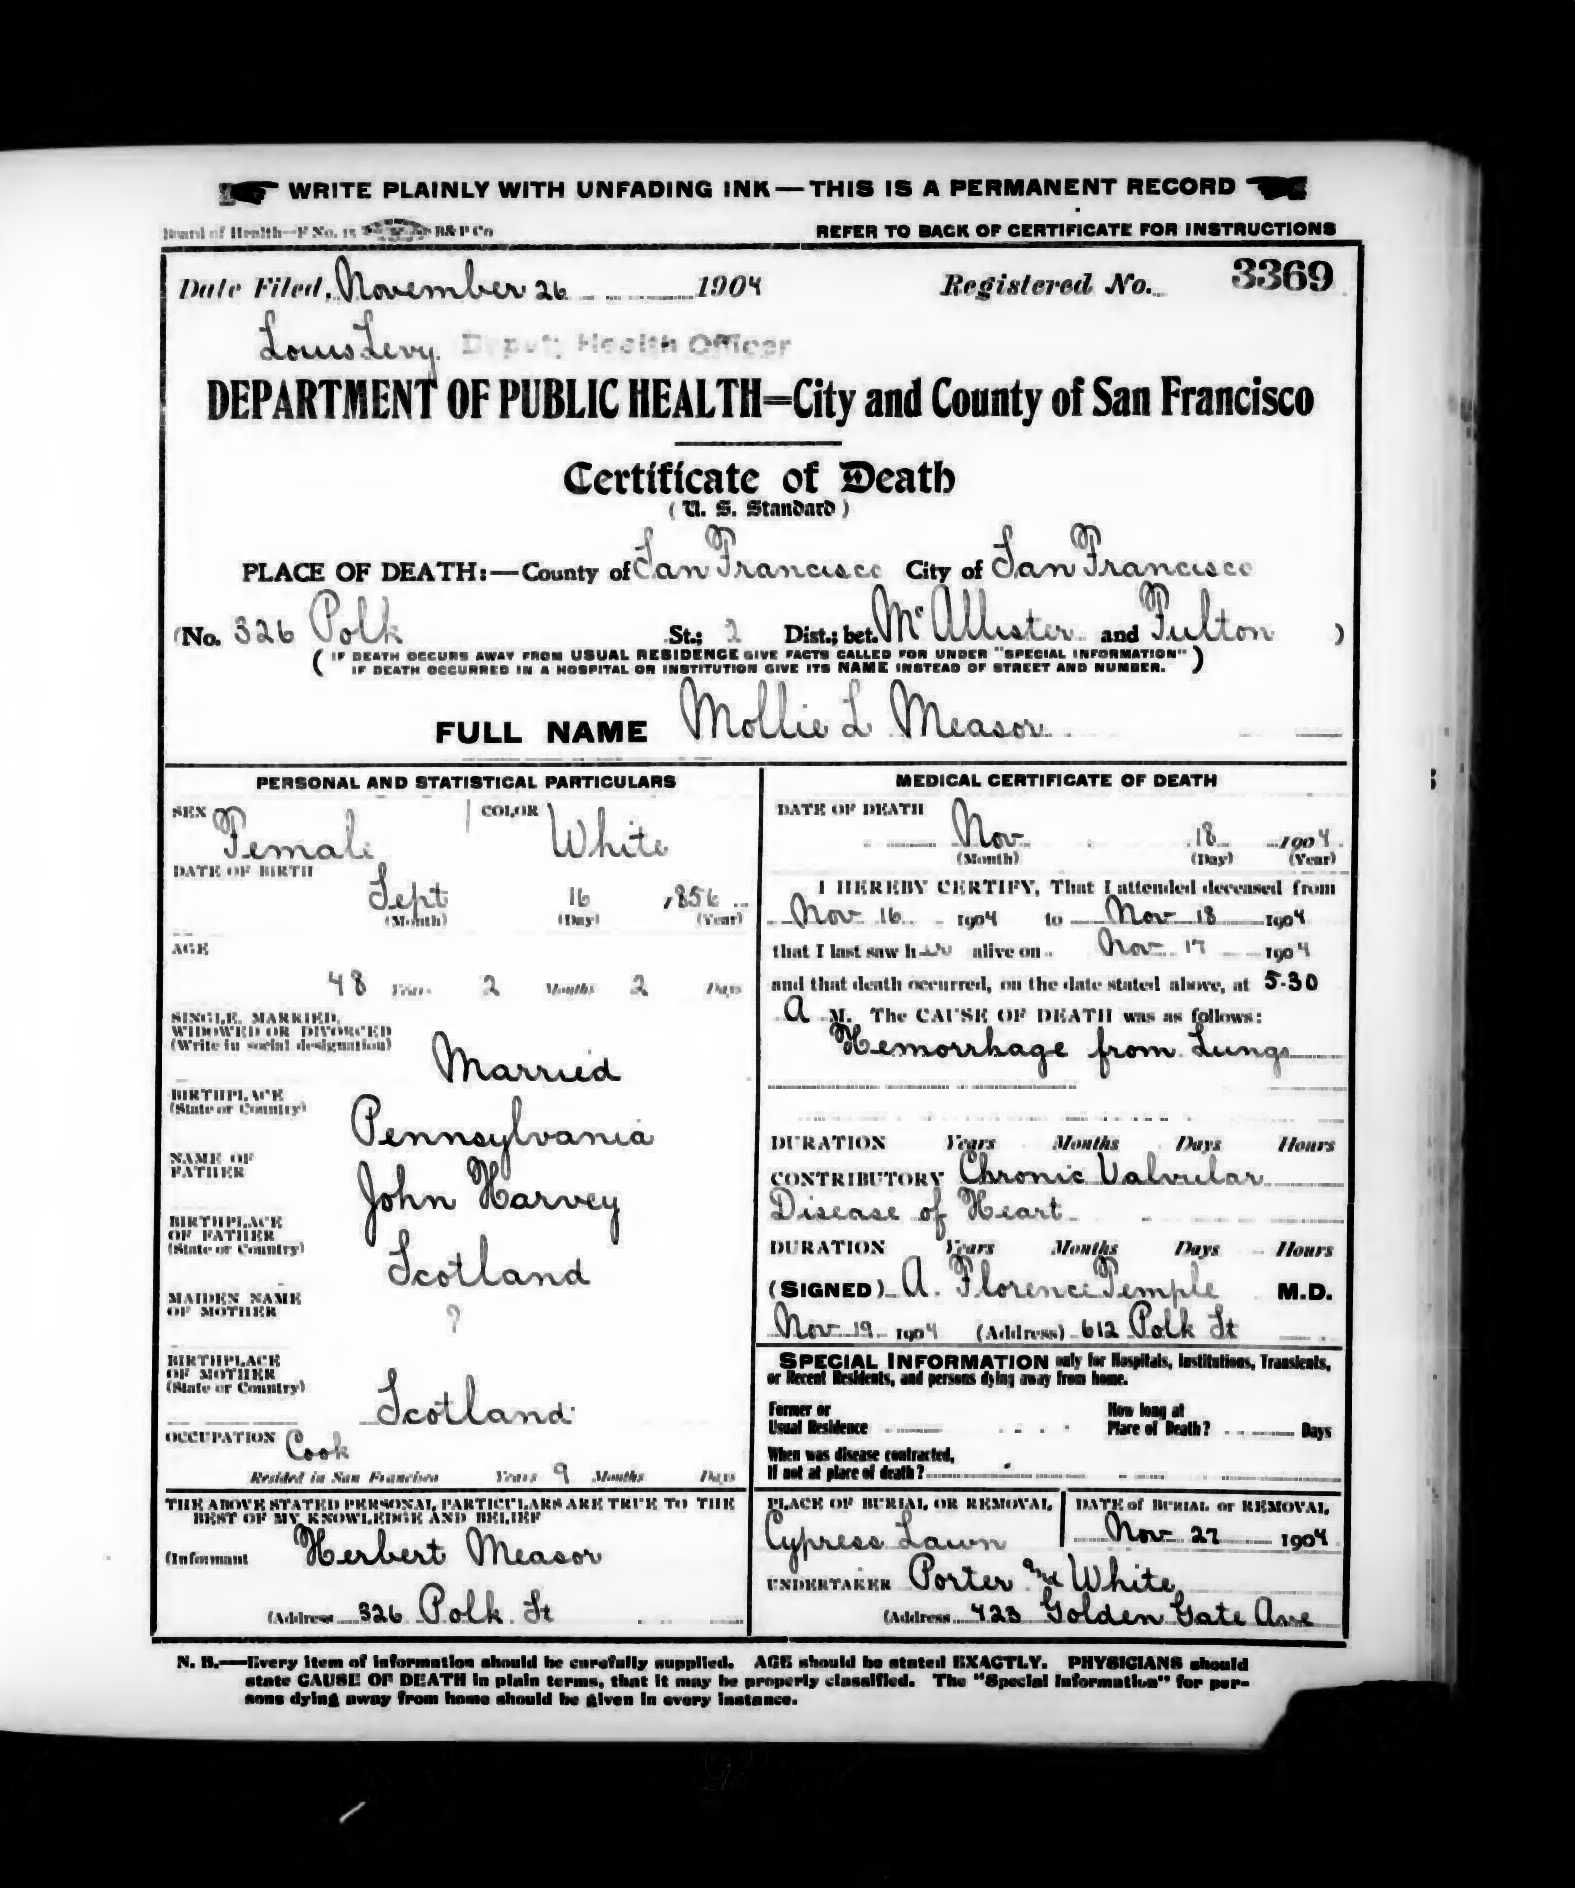 WRITE PLAINLY WITH UNFADING INK—THIS IS A PERMANENT RECORD
Board of Health—F No. 15 B&P Co REFER TO BACK OF CERTIFICATE FOR INSTRUCTIONS
Date Filed, November 26 1904 Registered No. 3369
Louis Levy Deputy Health Officer
DEPARTMENT OF PUBLIC HEALTH=City and County of San Francisco
Certificate of Death
(U. S. Standard)
PLACE OF DEATH:—County of San Francisco City of San Francisco
(No. 326 Polk St.; 2 Dist.; bet. McAllister and Fulton )
(IF DEATH OCCURS AWAY FROM USUAL RESIDENCE GIVE FACTS CALLED FOR UNDER "SPECIAL INFORMATION"
IF DEATH OCCURRED IN A HOSPITAL OR INSTITUTION GIVE ITS NAME INSTEAD OF STREET AND NUMBER.)
FULL NAME Mollie L Measor
PERSONAL AND STATISTICAL PARTICULARS
SEX Female COLOR White
DATE OF BIRTH
Sept 16 1856
(Month) (Day) (Year)
AGE
48 Years 2 Months 2 Days
SINGLE, MARRIED,
WIDOWED OR DIVORCED
(Write in social designation)
Married
BIRTHPLACE
(State or Country)
Pennsylvania
NAME OF
FATHER
John Harvey
BIRTHPLACE
OF FATHER
(State or Country)
Scotland
MAIDEN NAME
OF MOTHER
?
BIRTHPLACE
OF MOTHER
(State or Country)
Scotland
OCCUPATION Cook
Resided in San Francisco Years 9 Months Days
THE ABOVE STATED PERSONAL PARTICULARS ARE TRUE TO THE
BEST OF MY KNOWLEDGE AND BELIEF
(Informant Herbert Measor
(Address 326 Polk St
MEDICAL CERTIFICATE OF DEATH
DATE OF DEATH
Nov 18 1904
(Month) (Day) (Year)
I HEREBY CERTIFY, That I attended deceased from
Nov 16 1904 to Nov 18 1904
that I last saw her alive on Nov 17 1904
and that death occurred, on the date stated above, at 5-30
A M. The CAUSE OF DEATH was as follows:
Hemorrhage from Lungs
DURATION Years Months Days Hours
CONTRIBUTORY Chronic Valvular
Disease of Heart
DURATION Years Months Days Hours
(SIGNED) A. Florence Temple M.D.
Nov 19 1904 (Address) 612 Polk St
SPECIAL INFORMATION only for Hospitals, Institutions, Transients,
or Recent Residents, and persons dying away from home.
Former or
Usual Residence
How long at
Place of Death? Days
When was disease contracted,
If not at place of death?
PLACE OF BURIAL OR REMOVAL
Cypress Lawn
DATE of BURIAL or REMOVAL
Nov 27 1904
UNDERTAKER Porter and White
(Address 423 Golden Gate Ave
N. B.—Every item of information should be carefully supplied. AGE should be stated EXACTLY. PHYSICIANS should
state CAUSE OF DEATH in plain terms, that it may be properly classified. The "Special Information" for per-
sons dying away from home should be given in every instance.